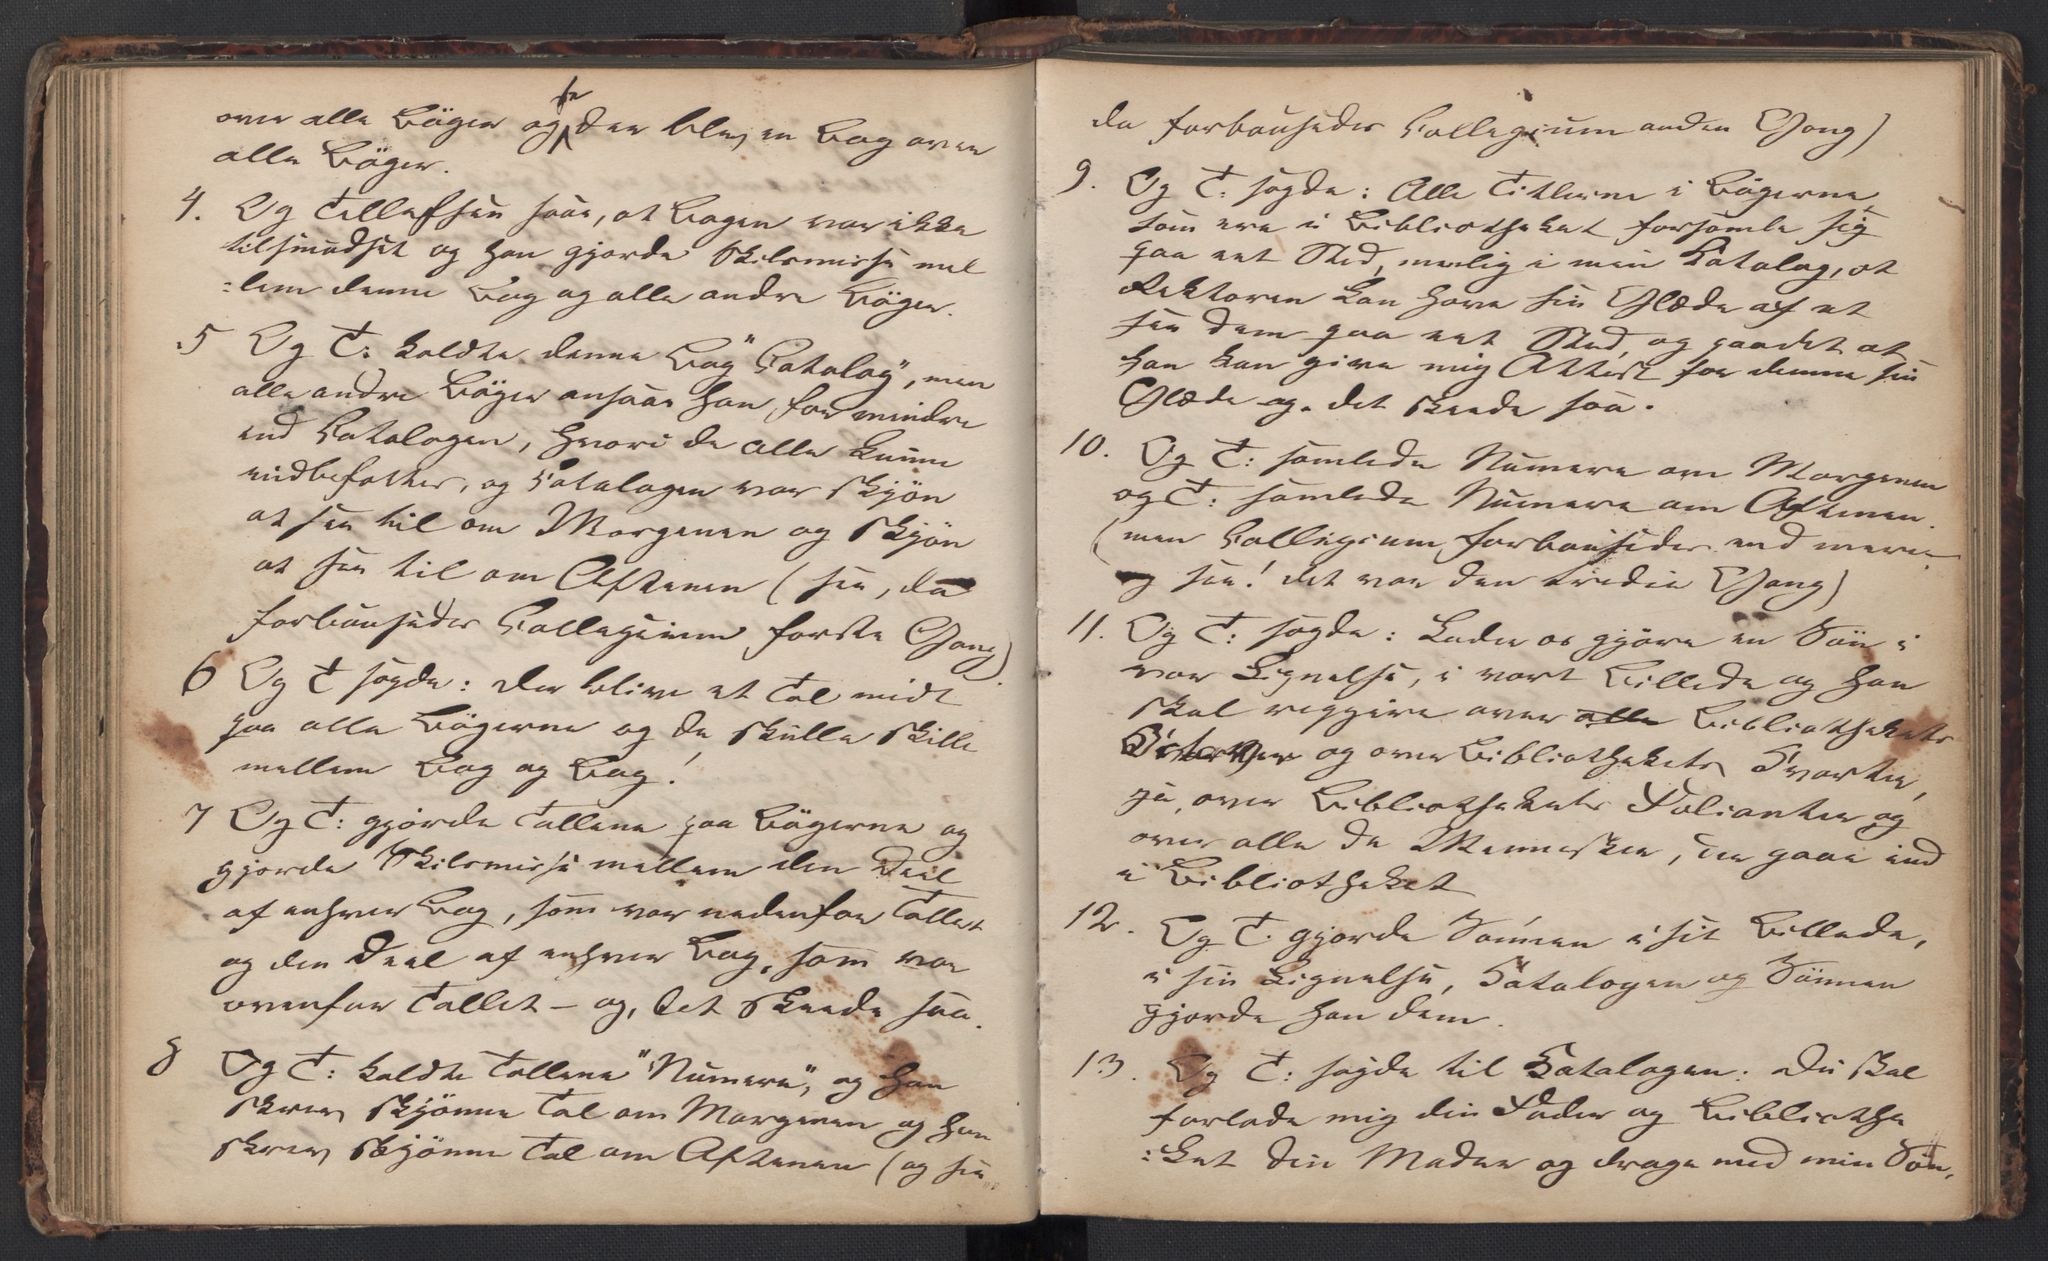 over alle Böger og se der blev en Bog over
alle Böger.
4. Og Tellefsen saae, at Bogen var ikke
tilsmudset og han gjorde Skilsmisse mel
=lem denne Bog og alle andre Böger.
5 Og T: kaldte denne Bog "Catalog", men
alle andre Böger ansaae han for mindre
end Catalogen, hvori de alle kunne
indbefattes, og Catalogen var skjön
at see til om Morgenen og skjön
at see til om Aftenen (see, da
forbausedes Collegium förste Gang)
6 Og T sagde: der blive et Tal midt
paa alle Bögerne og de skulle skille
mellem Bog og Bog!
7 Og T: gjorde Tallene paa Bögerne og
gjorde Skilsmisse mellem den Deel
af enhver Bog, som var nedenfor Tallet
og den Deel af enhver Bog, som var
ovenfor Tallet – og, det skeede saa.
8 Og T: kaldte Tallene "Numere", og han
skrev skjönne Tal om Morgenen og han
skrev skjönne Tal om Aftenen (og see
da forbausedes Collegium anden Gang)
9. Og T: sagde: Alle Titlerne i Bögerne,
som ere i Bibliotheket forsamle sig
paa eet Sted, nemlig i min Katalog, at
Rektoren kan have sin Glæde af at
see dem paa eet Sted, og paadet at
han kan give mig Attest for denne sin
Glæde og. det skeede saa.
10. Og T: samlede Numere om Morgenen
og T: samlede Numere om Aftenen.
(men Collegium forbausedes end mere
og see! det var den tredie Gang)
11. Og T: sagde: Lader os gjöre en Sön i
vor Lignelse, i vort Billede og han
skal reggjere over alle Bibliothekets
Octaver og over Bibliothekets Qvarter,
ja, over Bibliothekets Folianter og
over alle de Mennesker, der gaae ind
i Bibliotheket
12. Og T. gjorde Sönnen i sit Billede,
i sin Lignelse, Catalogen og Sönnen
gjorde han dem.
13. Og T: sagde til Katalogen: du skal
forlade mig din Fader og Bibliothe
=ket din Moder og drage med min Sön,